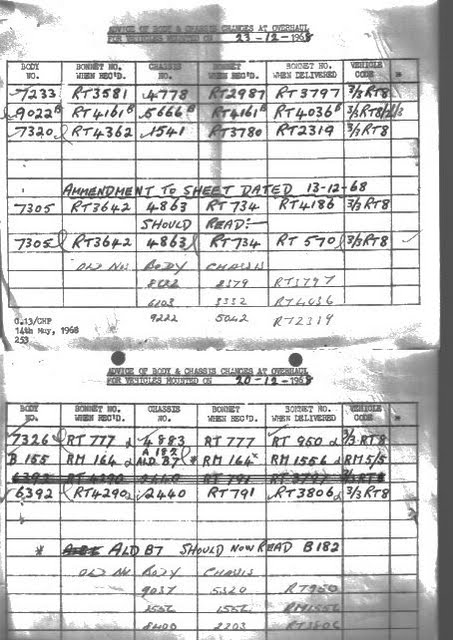 ADVICE OF BODY & CHASSIS CHANGES AT OVERHAUL
FOR VEHICLES MOUNTED ON 23-12-1968
BODY NO. BONNET NO. WHEN REC'D. CHASSIS NO. BONNET WHEN REC'D. BONNET NO. WHEN DELIVERED VEHICLE CODE
7233 RT3581 4778 RT2987 RT3797 3/3RT8
9022B RT4161B 5666B RT4161B RT4036B 3/3RT8/2/3
7320 RT4362 1541 RT3780 RT2319 3/3RT8
AMMENDMENT TO SHEET DATED 13-12-68
7305 RT3642 4863 RT734 RT4186 3/3RT8
SHOULD READ:-
7305 RT3642 4863 RT734 RT570 3/3RT8
OLD NO BODY CHASSIS
8379 RT3797
3332 RT4036
9222 5042 RT2319
0.13/CHP
14th May, 1968
253
ADVICE OF BODY & CHASSIS CHANGES AT OVERHAUL
FOR VEHICLES MOUNTED ON 20-12-1968
BODY NO. BONNET NO. WHEN REC'D. CHASSIS NO. BONNET WHEN REC'D. BONNET NO. WHEN DELIVERED VEHICLE CODE
7326 RT777 4883 RT777 RT950 3/3RT8
B155 RM164 A182 ALD B7 * RM164x RM1556 RM5/5
6392 RT4290 2440 RT791 RT3797 3/3RT8
6392 RT4290 2440 RT791 RT3806 3/3RT8
* ALD B7 SHOULD NOW READ B182
OLD NO BODY CHASSIS
9037 5320 RT950
1556 1556 RM1556
8400 2203 RT3806